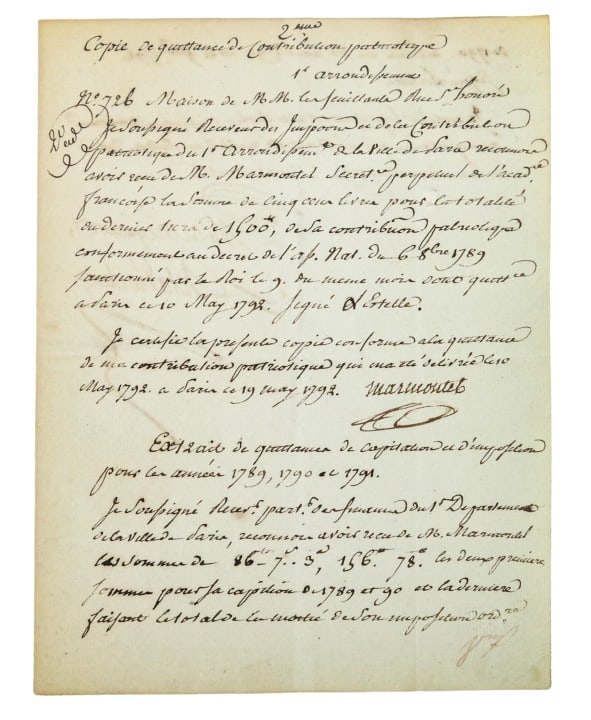 2eme
Copie de quittance de Contribution patriotique
1er arrondissement
No. 726 Maison de M.M. les feuillants Rue St. honoré
Je Soussigné Receveur des Impons. et de la Contribution
patriotique du 1er Arrondissemt. de la ville de Paris reconnois
avoir recu de M. Marmontel Secretre. perpetuel de l'acadie.
françoise la Somme de Cinq cens livres pour la totalité
du dernier tiers de 1500tt, de Sa contribution patriotique
conformement au decret de l'ass. Nat. du 6 8bre 1789
Sanctionné par le Roi le 9. du meme mois dont quittce
a Paris ce 10 May 1792. Signé d'Estelle.
Je certifie la presente copie conforme a la quittance
de ma contribution patriotique qui m'a été délivrée le 10
May 1792. a Paris ce 19 may 1792. Marmontel
Extrait de quittances de capitation et d'imposition
pour les années 1789, 1790 et 1791.
Je Soussigné Recevr. partr. des finances du 1er Departement
de la ville de Paris, reconnois avoir recu de M. Marmontel
les sommes de 86tt. 7s. 3d, 156tt. 78tt. les deux premieres
sommes pour sa capation de 1789 et 90 et la derniere
faisant le total de la moitié de Son imposition ordre.